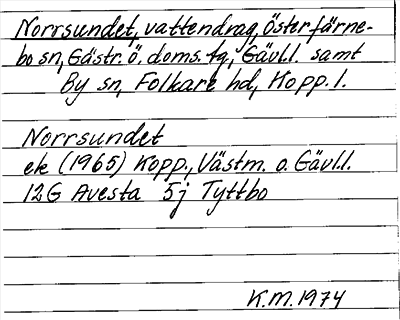 Norrsundet, vattendrag, Österfärne-
bo sn, Gästr. ö. doms. tg, Gävl.l. samt
By sn, Folkare hd, Kopp. l.
Norrsundet
ek (1965) Kopp., Västm. o. Gävl.l.
12G Avesta 5j Tyttbo
K.M. 1974